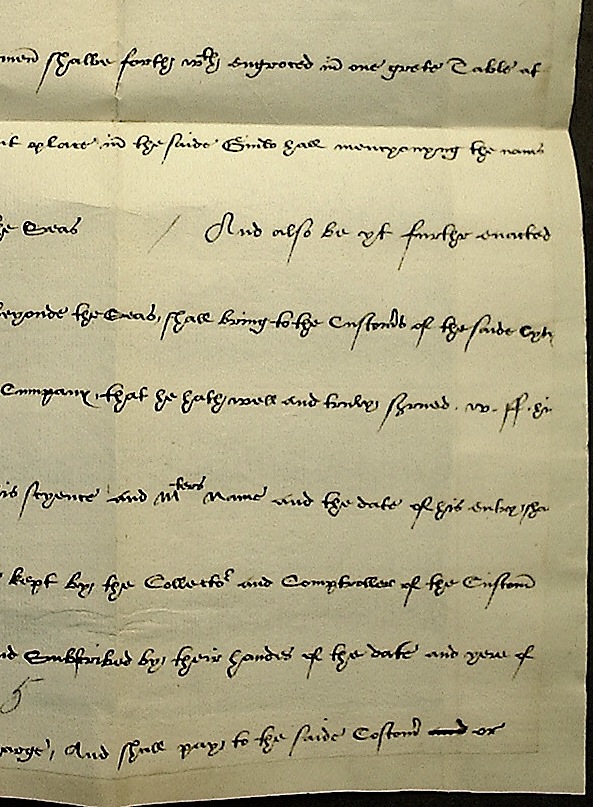 men shalbe forth wth engroced in one grete Table at
place in the saide Guild hall mencyonyng the names
Seas / And also be yt further enacted
beyonde the Seas, shall bring to the Customs of the saide Cyti
Company, that he hath well and truly served
his scyence and Mters Name and the date of his entry, sha
kept by the Collector and Comptroller of the Custom
Subscribed by their handes of the date and yere of
5
And shall pay to the saide Custom or